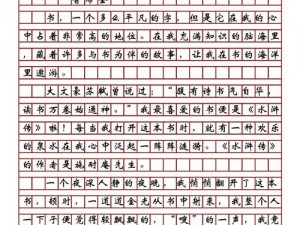 书，一个多么平凡的字，但是它在我的心
中占着非常高的地位。在我充满知识的脑海里
，藏着许多与书为伴的故事，让我在书的海洋
里遨游。
大文豪苏轼曾说过：“腹有诗书气自华，
读书万卷始通神。”我最喜爱的书是《水浒
传》啦！每当我打开这本书时，就有一种欢乐
的泉水在我心中泛起一阵阵涟漪。《水浒传》
的作者是施耐庵先生。
一个夜深人静的夜晚，我悄悄翻开了这本
书，顿时，一道道金光从书中射来，我整个人
一下子便觉得轻飘飘的，“嗖”的一声，我竟